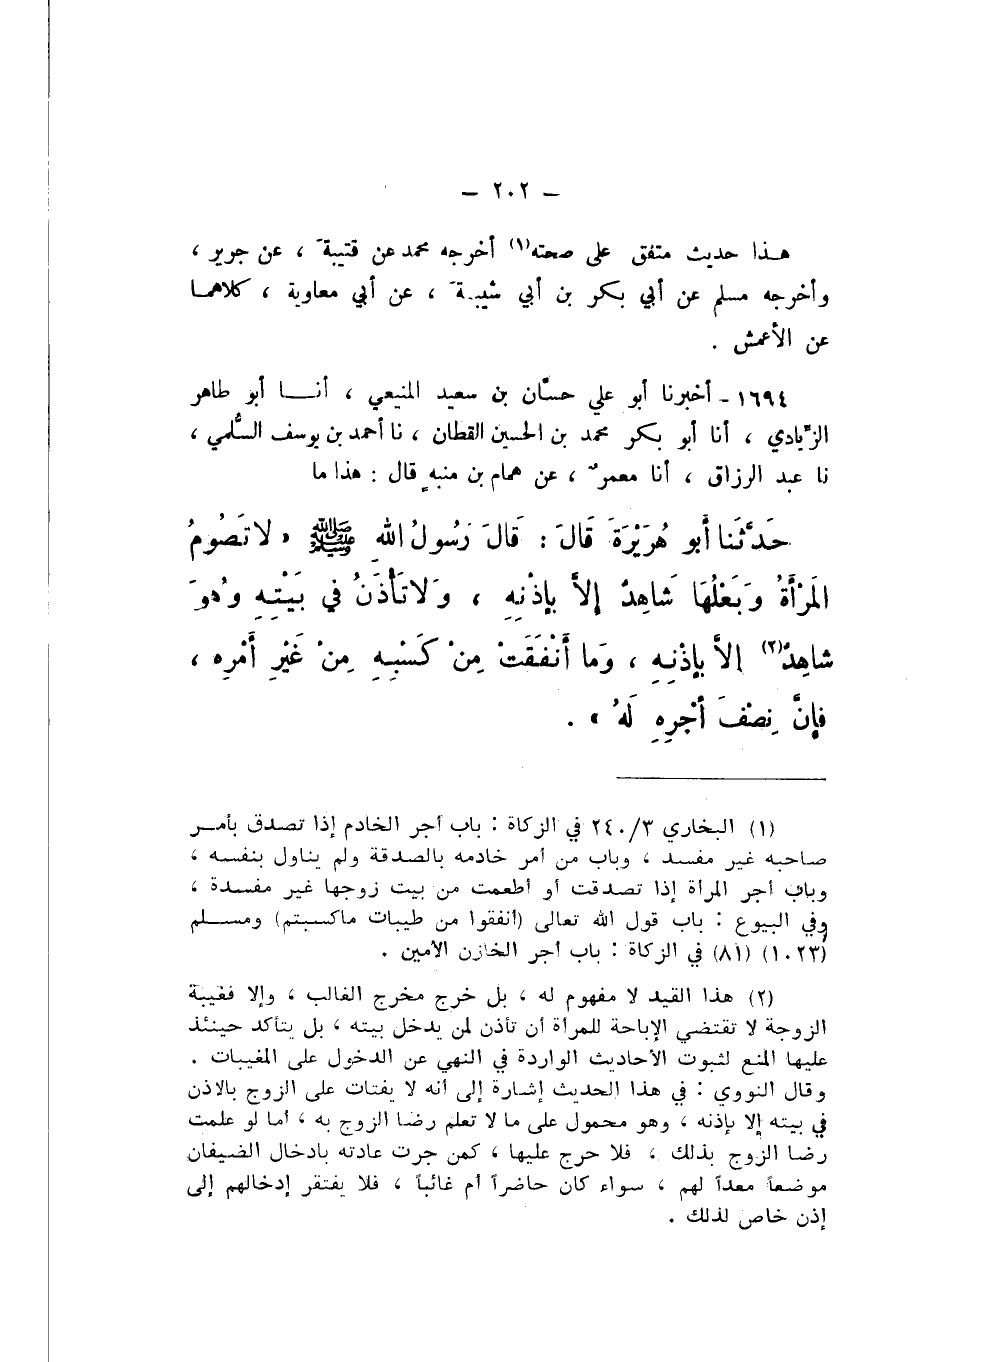 – ٢٠٢ –
هـذا حديث متفق على صحته(١) أخرجه محمد عن قتيبةَ ، عن جرير ،
وأخرجه مسلم عن أبي بكر بن أبي شيبـةَ ، عن أبي معاوية ، كلاهمـا
عن الأعمش .
١٦٩٤ - أخبرنا أبو علي حسّان بن سعيد المنيعي ، أنـا أبو طاهر
الزّيادي ، أنا أبو بكر محمد بن الحسين القطان ، نا أحمد بن يوسف السُّلمي ،
نا عبد الرزاق ، أنا معمرٌ ، عن همام بن منبهٍ قال : هذا ما
حَدَّثَنا أبو هُرَيْرَةَ قَالَ : قَالَ رَسُولُ اللهِ ﷺ « لا تَصُومُ
المَرْأَةُ وَبَعْلُهَا شَاهِدٌ إلاَّ بإذْنِهِ ، وَلا تَأْذَنُ في بَيْتِهِ وَهُوَ
شاهِدٌ(٢) إلاَّ بإذْنِهِ ، وَما أَنْفَقَتْ مِنْ كَسْبِهِ مِنْ غَيْرِ أَمْرِهِ ،
فإنَّ نِصْفَ أجْرِهِ لَهُ » .
(١) البخاري ٢٤٠/٣ في الزكاة : باب أجر الخادم إذا تصدق بأمـر
صاحبه غير مفسد ، وباب من أمر خادمه بالصدقة ولم يناول بنفسه ،
وباب أجر المرأة إذا تصدقت أو أطعمت من بيت زوجها غير مفسدة ،
وفي البيوع : باب قول الله تعالى (أنفقوا من طيبات ماكسبتم) ومسـلم
(١٠٢٣) (٨١) في الزكاة : باب أجر الخازن الأمين .
(٢) هذا القيد لا مفهوم له ، بل خرج مخرج الغالب ، وإلا فغيبة
الزوجة لا تقتضي الإباحة للمرأة أن تأذن لمن يدخل بيته ، بل يتأكد حينئذ
عليها المنع لثبوت الأحاديث الواردة في النهي عن الدخول على المغيبات .
وقال النووي : في هذا الحديث إشارة إلى أنه لا يفتات على الزوج بالاذن
في بيته إلا بإذنه ، وهو محمول على ما لا تعلم رضا الزوج به ، أما لو علمت
رضا الزوج بذلك ، فلا حرج عليها ، كمن جرت عادته بادخال الضيفان
موضعاً معداً لهم ، سواء كان حاضراً أم غائباً ، فلا يفتقر إدخالهم إلى
إذن خاص لذلك .